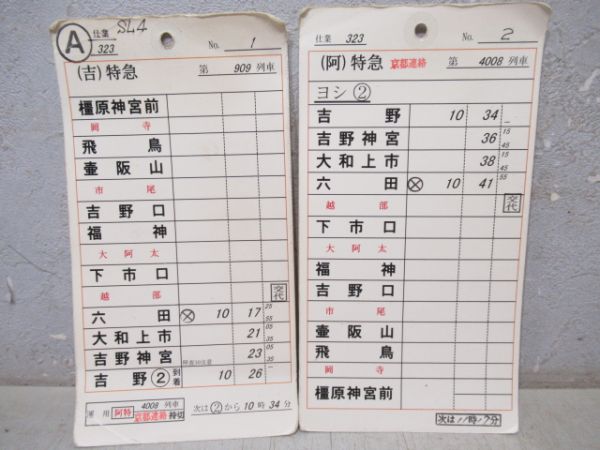 Ⓐ 仕業 323 SL4 No. 1
(吉) 特急 第 909 列車
橿原神宮前
岡寺
飛鳥
壷阪山
市尾
吉野口
福神
大阿太
下市口
越部 交代
六田 ⊗ 10 17 25 55
大和上市 21 05 35
吉野神宮 23 05 35
吉野② 到着 10 26 —
運用 阿特 4008 列車 京都連絡 持切 次は②から10時34分
仕業 323 No. 2
(阿) 特急 京都連絡 第 4008 列車
ヨシ②
吉野 10 34 —
吉野神宮 36 15 45
大和上市 38 15 45
六田 ⊗ 10 41 55
越部 交代
下市口
大阿太
福神
吉野口
市尾
壷阪山
飛鳥
岡寺
橿原神宮前
次は11時17分